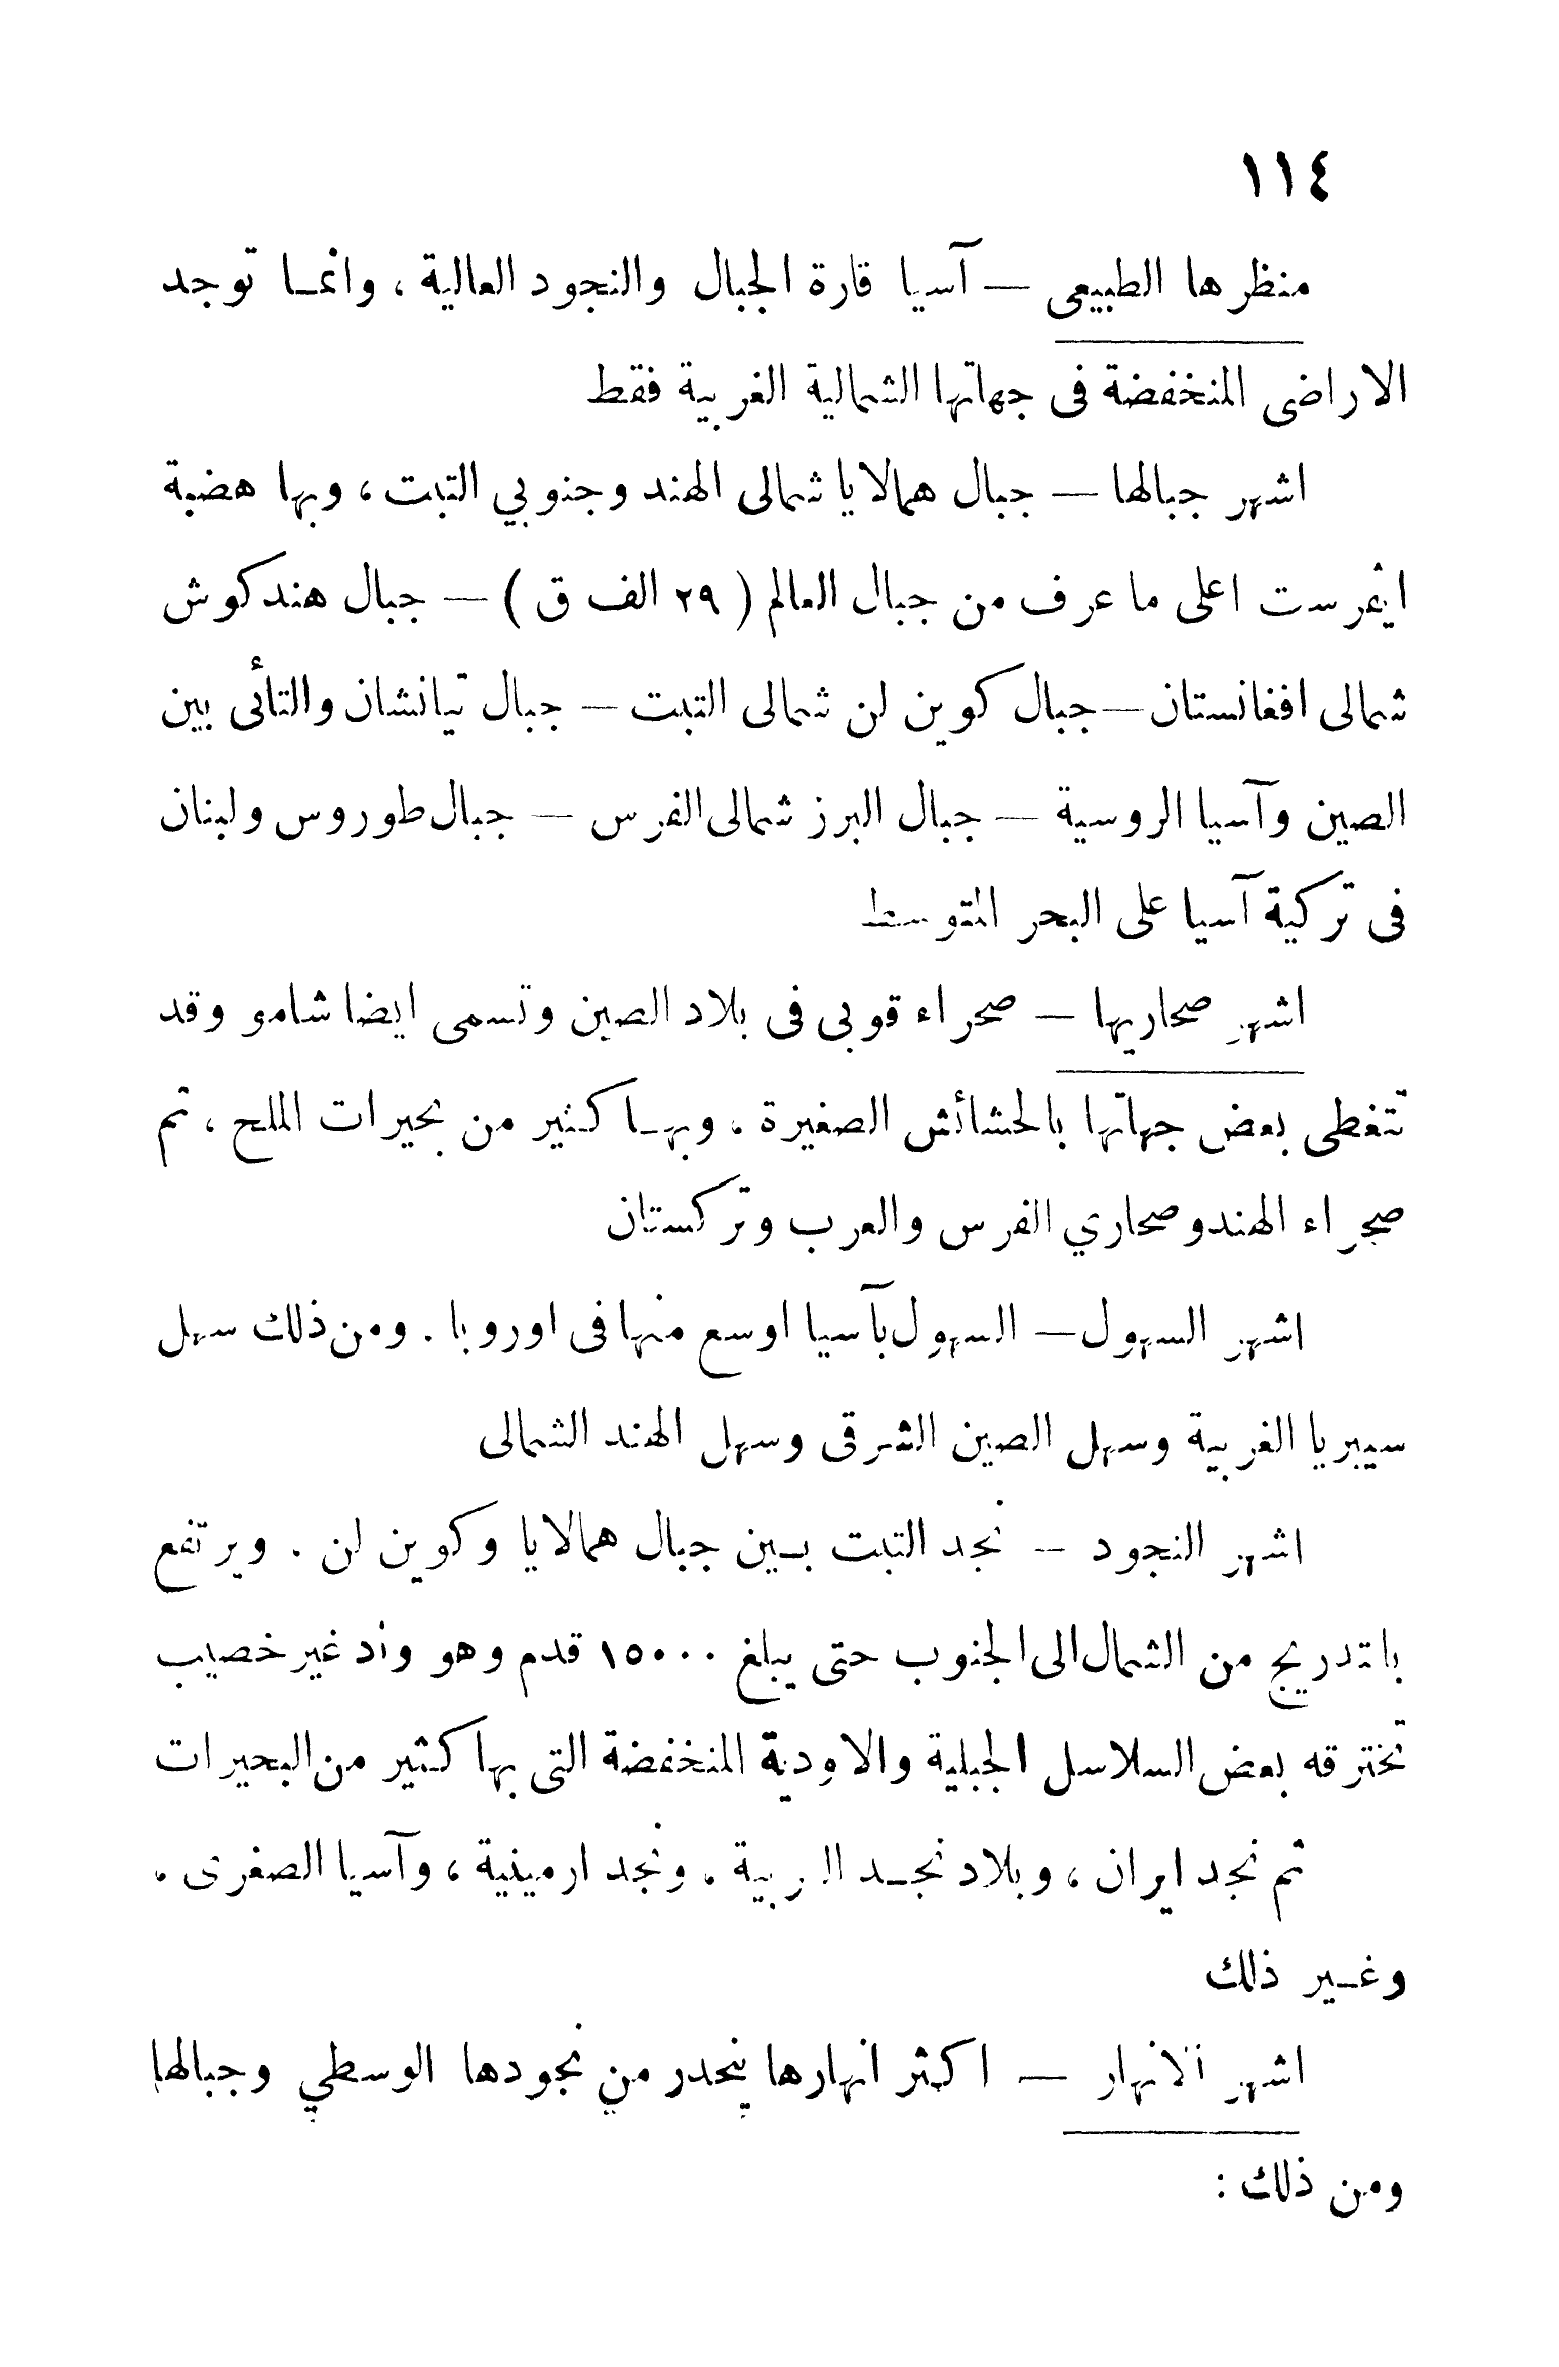 ١١٤
منظرها الطبيعى — آسيا قارة الجبال والنجود العالية ، وانما توجد
الاراضى المنخفضة فى جهاتها الشمالية الغربية فقط
اشهر جبالها — جبال همالايا شمالى الهند وجنوبي التبت ، وبها هضبة
ايفرست اعلى ما عرف من جبال العالم ( ٢٩ الف ق ) — جبال هندكوش
شمالى افغانستان — جبال كوين لن شمالى التبت — جبال تيانشان والتائى بين
الصين وآسيا الروسية — جبال البرز شمالى الفرس — جبال طوروس ولبنان
فى تركية آسيا على البحر المتوسط
اشهر صحاريها — صحراء قوبى فى بلاد الصين وتسمى ايضا شامو وقد
تتغطى بعض جهاتها بالحشائش الصغيرة ، وبها كثير من بحيرات الملح ، ثم
صحراء الهند وصحاري الفرس والعرب وتركستان
اشهر السهول — السهول بآسيا اوسع منها فى اوروبا . ومن ذلك سهل
سيبريا الغربية وسهل الصين الشرقى وسهل الهند الشمالى
اشهر النجود — نجد التبت بين جبال همالايا وكوين لن . ويرتفع
باتدريج من الشمال الى الجنوب حتى يبلغ ١٥٠٠٠ قدم وهو واد غير خصيب
تخترقه بعض السلاسل الجبلية والاودية المنخفضة التى بها كثير من البحيرات
ثم نجد ايران ، وبلاد نجد العربية ، ونجد ارمينية ، وآسيا الصغرى ،
وغير ذلك
اشهر الانهار — اكثر انهارها ينحدر من نجودها الوسطي وجبالها
ومن ذلك :